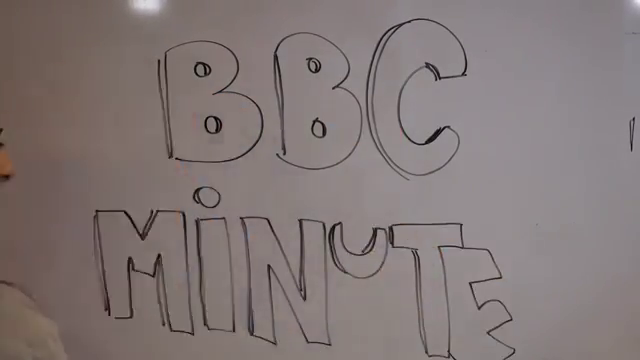 BBC
MiNUTE